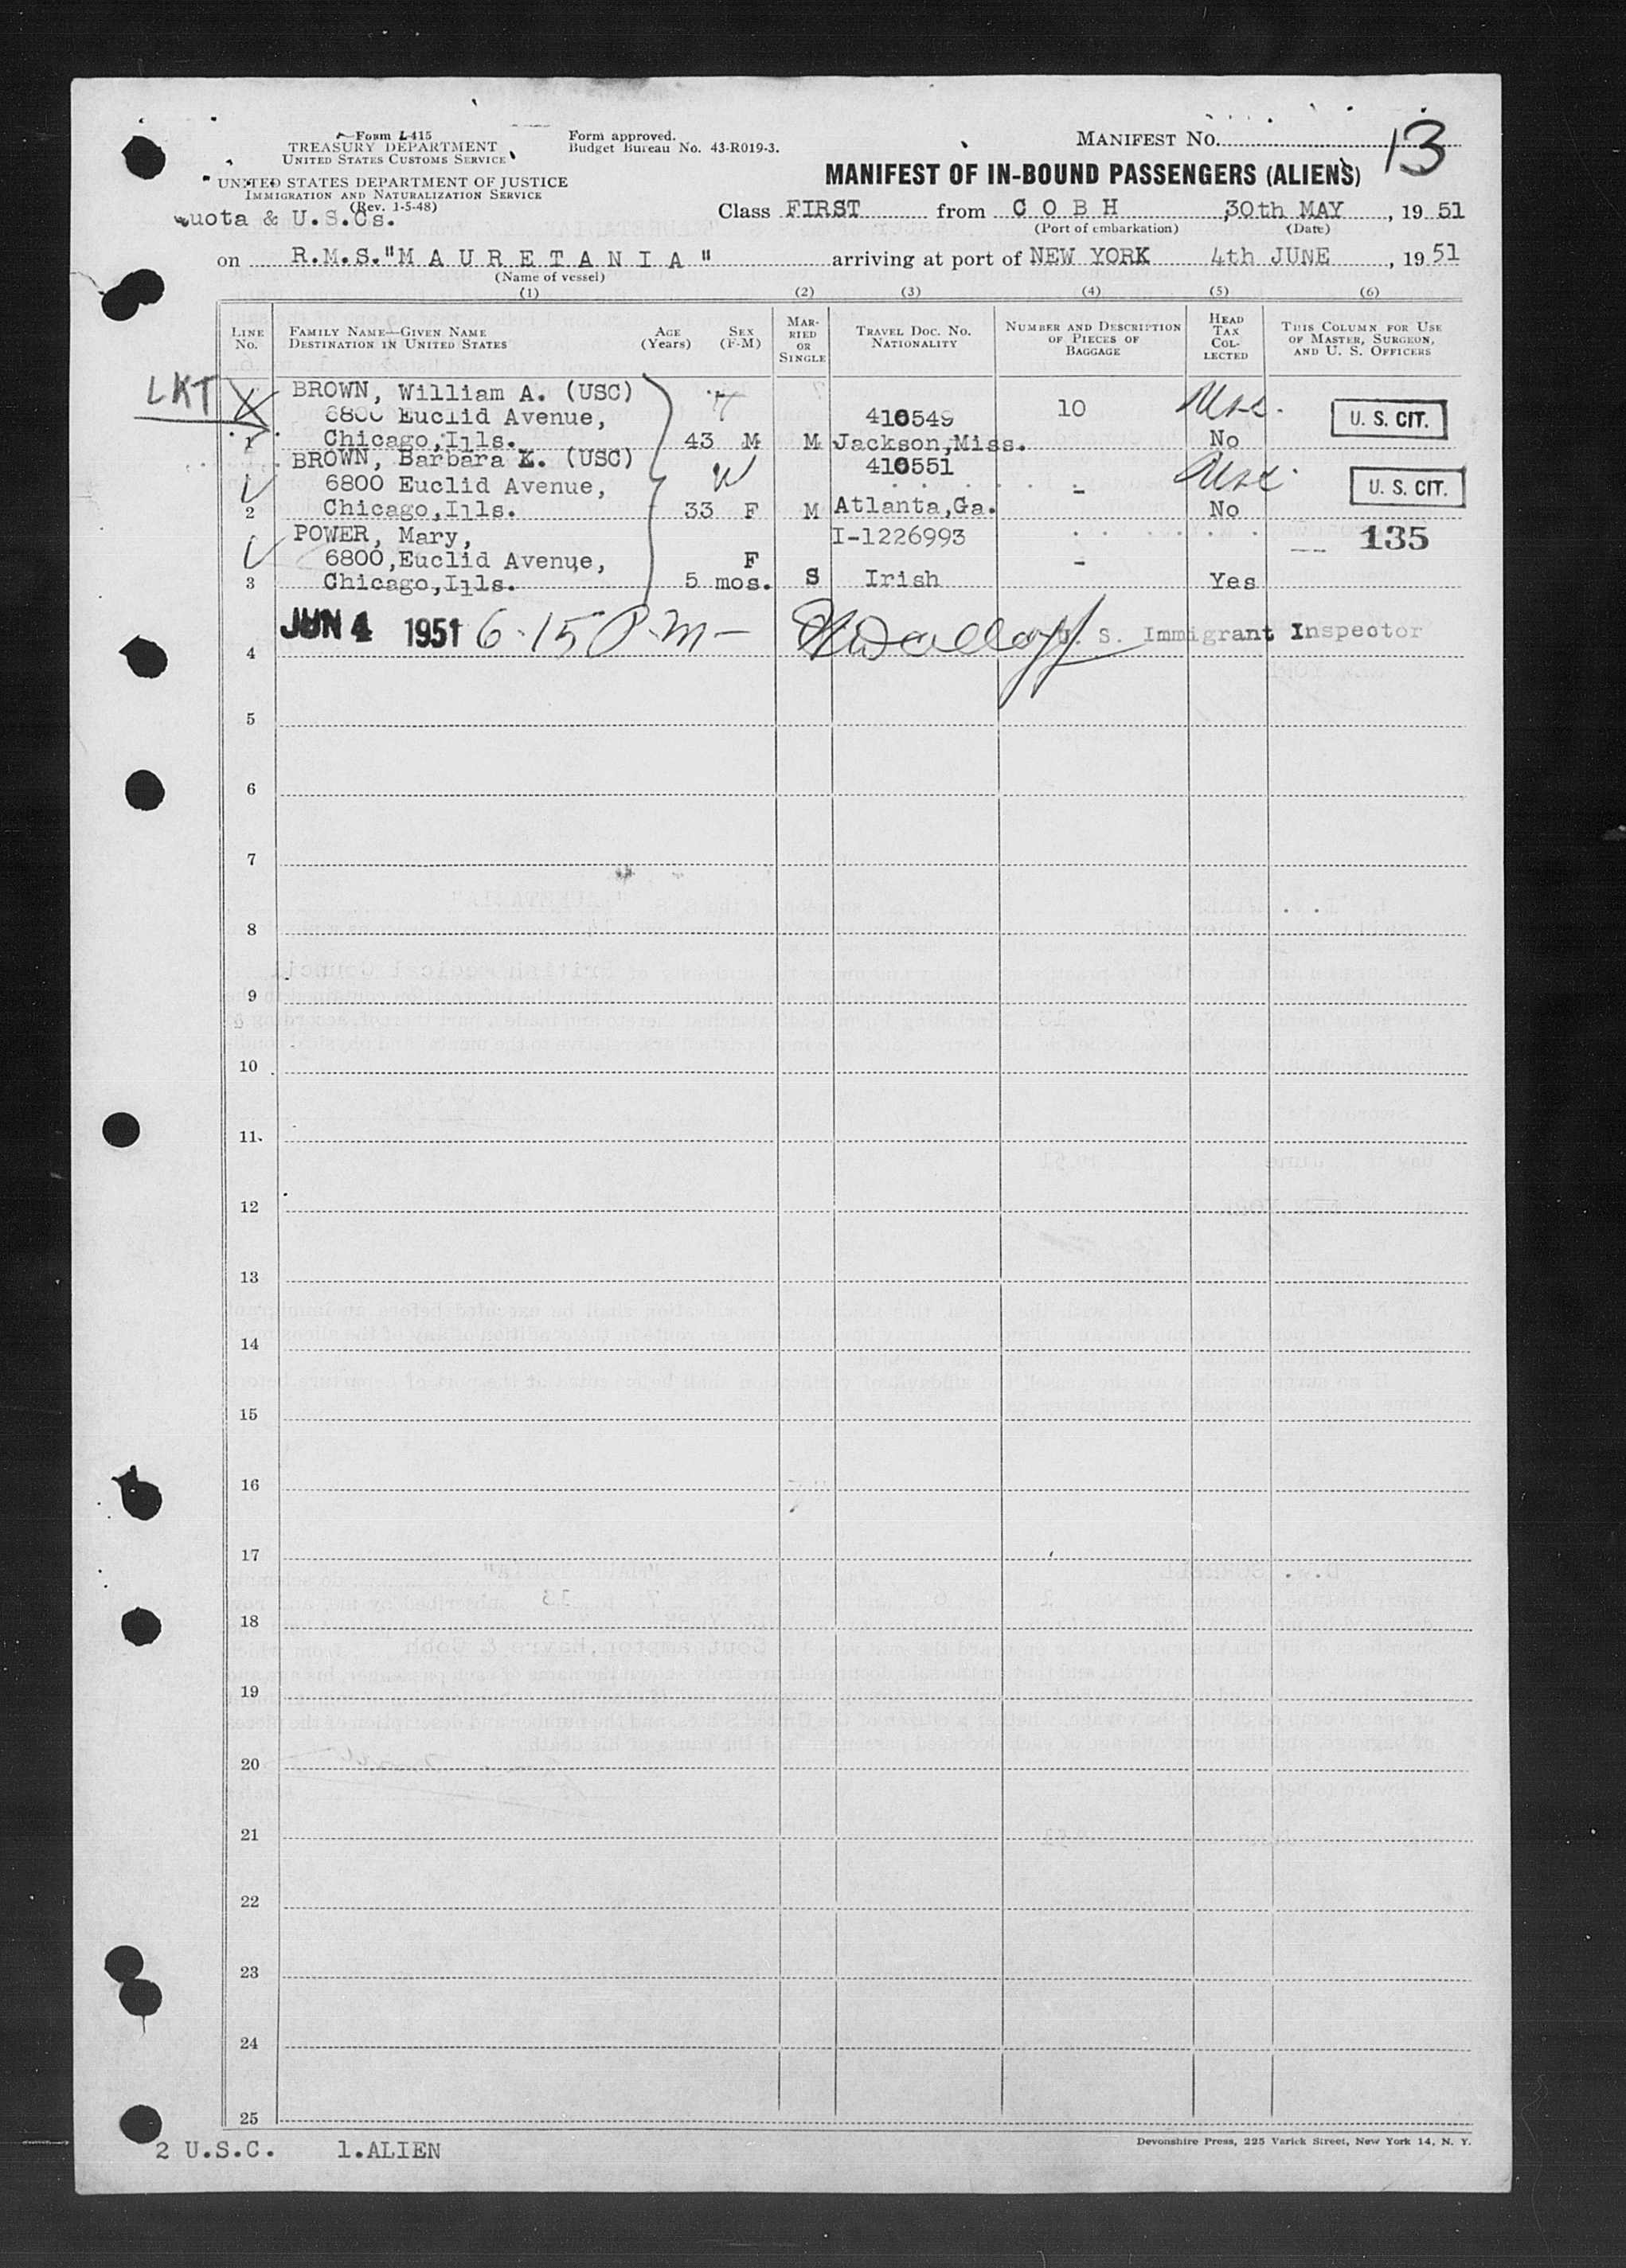 Form I-415
TREASURY DEPARTMENT
UNITED STATES CUSTOMS SERVICE
UNITED STATES DEPARTMENT OF JUSTICE
IMMIGRATION AND NATURALIZATION SERVICE
(Rev. 1-5-48)
Form approved.
Budget Bureau No. 43-R019-3.
MANIFEST No. 13
MANIFEST OF IN-BOUND PASSENGERS (ALIENS)
uota & U.S.Cs.
Class FIRST from C O B H 30th MAY, 19 51
(Port of embarkation) (Date)
on R.M.S."M A U R E T A N I A" arriving at port of NEW YORK 4th JUNE, 19 51
(Name of vessel)
(1) (2) (3) (4) (5) (6)
LINE No. FAMILY NAME—GIVEN NAME DESTINATION IN UNITED STATES AGE (Years) SEX (F-M) MARRIED OR SINGLE TRAVEL DOC. NO. NATIONALITY NUMBER AND DESCRIPTION OF PIECES OF BAGGAGE HEAD TAX COLLECTED THIS COLUMN FOR USE OF MASTER, SURGEON, AND U. S. OFFICERS
LKT
BROWN, William A. (USC)
6800 Euclid Avenue, 410549 10 U. S. CIT.
1 Chicago,Ills. 43 M M Jackson,Miss. No
BROWN, Barbara (USC) 410551
6800 Euclid Avenue, - U. S. CIT.
2 Chicago,Ills. 33 F M Atlanta,Ga. No
POWER, Mary, I-1226993 135
6800,Euclid Avenue, F -
3 Chicago,Ills. 5 mos. S Irish Yes
JUN 4 1951 6.15 P.M— U. S. Immigrant Inspector
4
5
6
7
8
9
10
11
12
13
14
15
16
17
18
19
20
21
22
23
24
25
2 U.S.C. 1.ALIEN
Devonshire Press, 225 Varick Street, New York 14, N. Y.